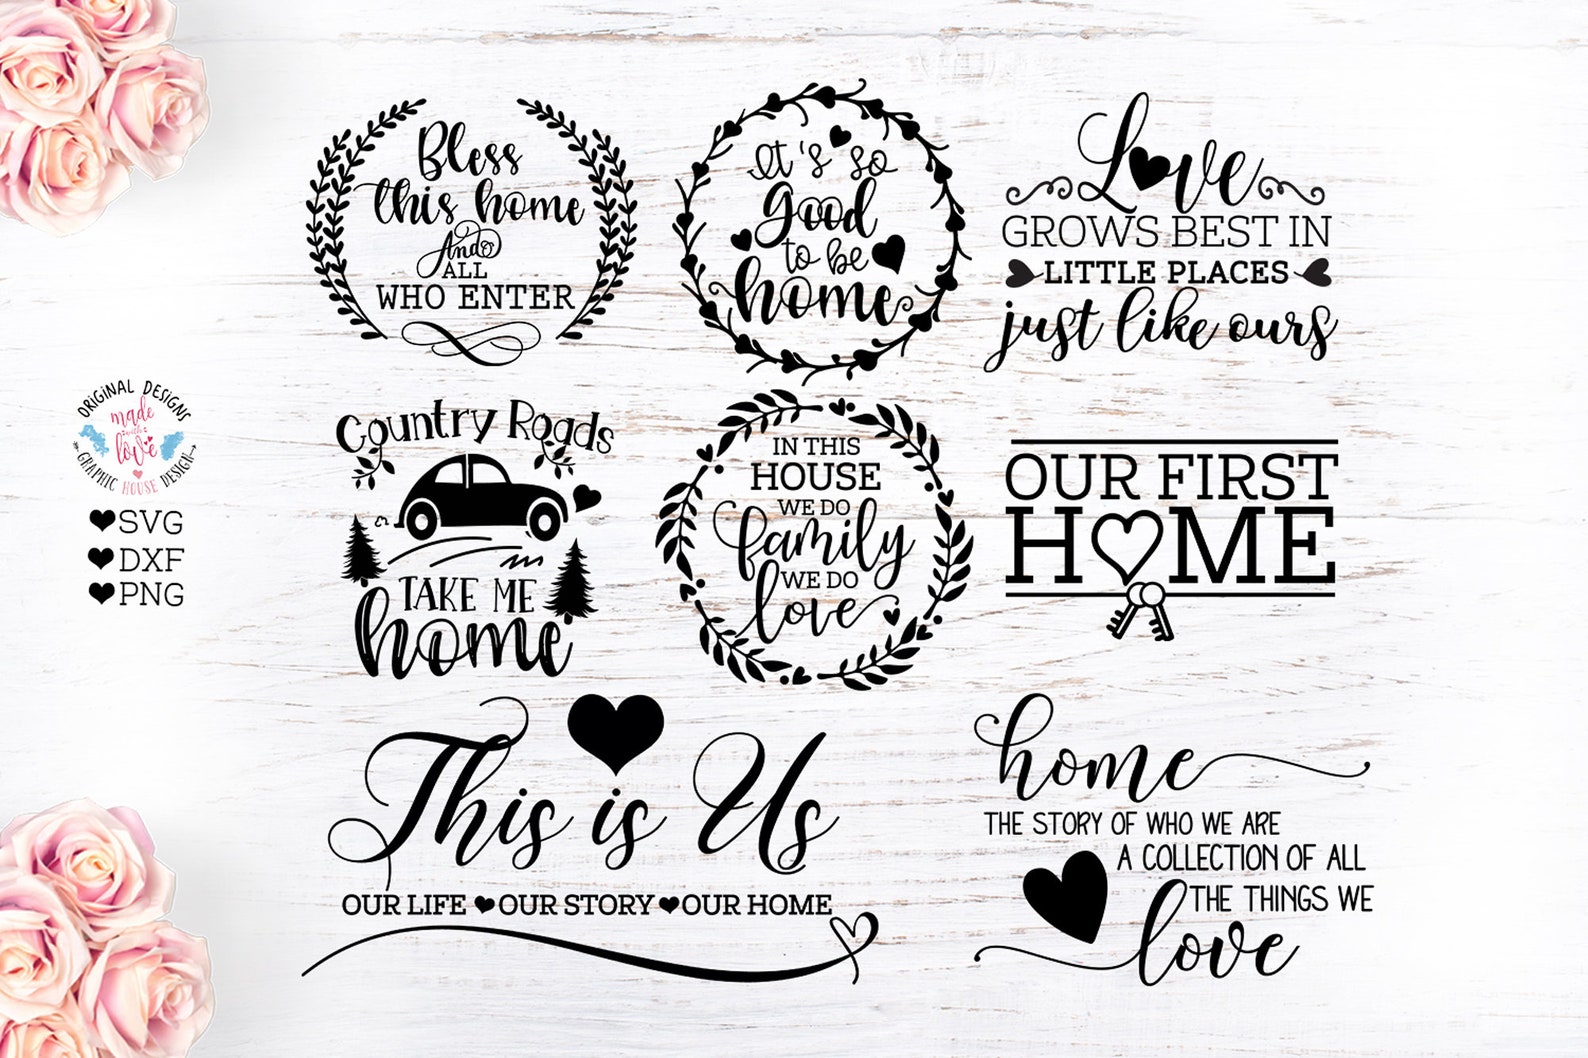 Bless
this home
And
ALL
WHO ENTER
It's so
good
to be
home
Love
GROWS BEST IN
LITTLE PLACES
just like ours
ORIGINAL DESIGNS
made
with
love
GRAPHIC HOUSE DESIGN
SVG
DXF
PNG
Country Roads
TAKE ME
home
IN THIS
HOUSE
WE DO
family
WE DO
love
OUR FIRST
HOME
This is Us
OUR LIFE OUR STORY OUR HOME
home
THE STORY OF WHO WE ARE
A COLLECTION OF ALL
THE THINGS WE
love